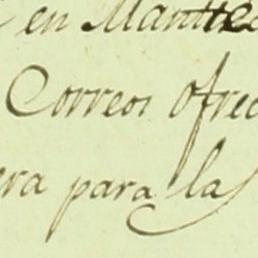 en Mante
Correos ofrec
era para la